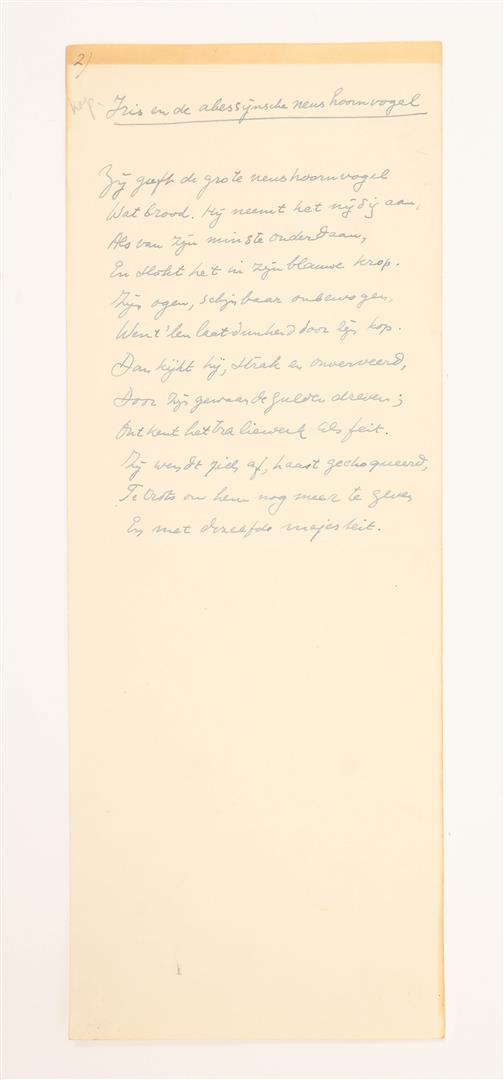 2)
kop. Iris en de abessijnsche neushoornvogel
Zij geeft de grote neushoornvogel
Wat brood. Hij neemt het nijdig aan,
Als van zijn minste onderdaan,
En slokt het in zijn blauwe krop.
Zijn ogen, schijnbaar onbewogen,
Went'len laatdunkend door zijn kop.
Dan kijkt hij, strak en onverveerd,
Door zijn gewaande gulden dreven;
Ontkent het traliewerk als feit.
Zij wendt zich af, haast gechoqueerd,
Te trots om hem nog meer te geven
En met dezelfde majesteit.